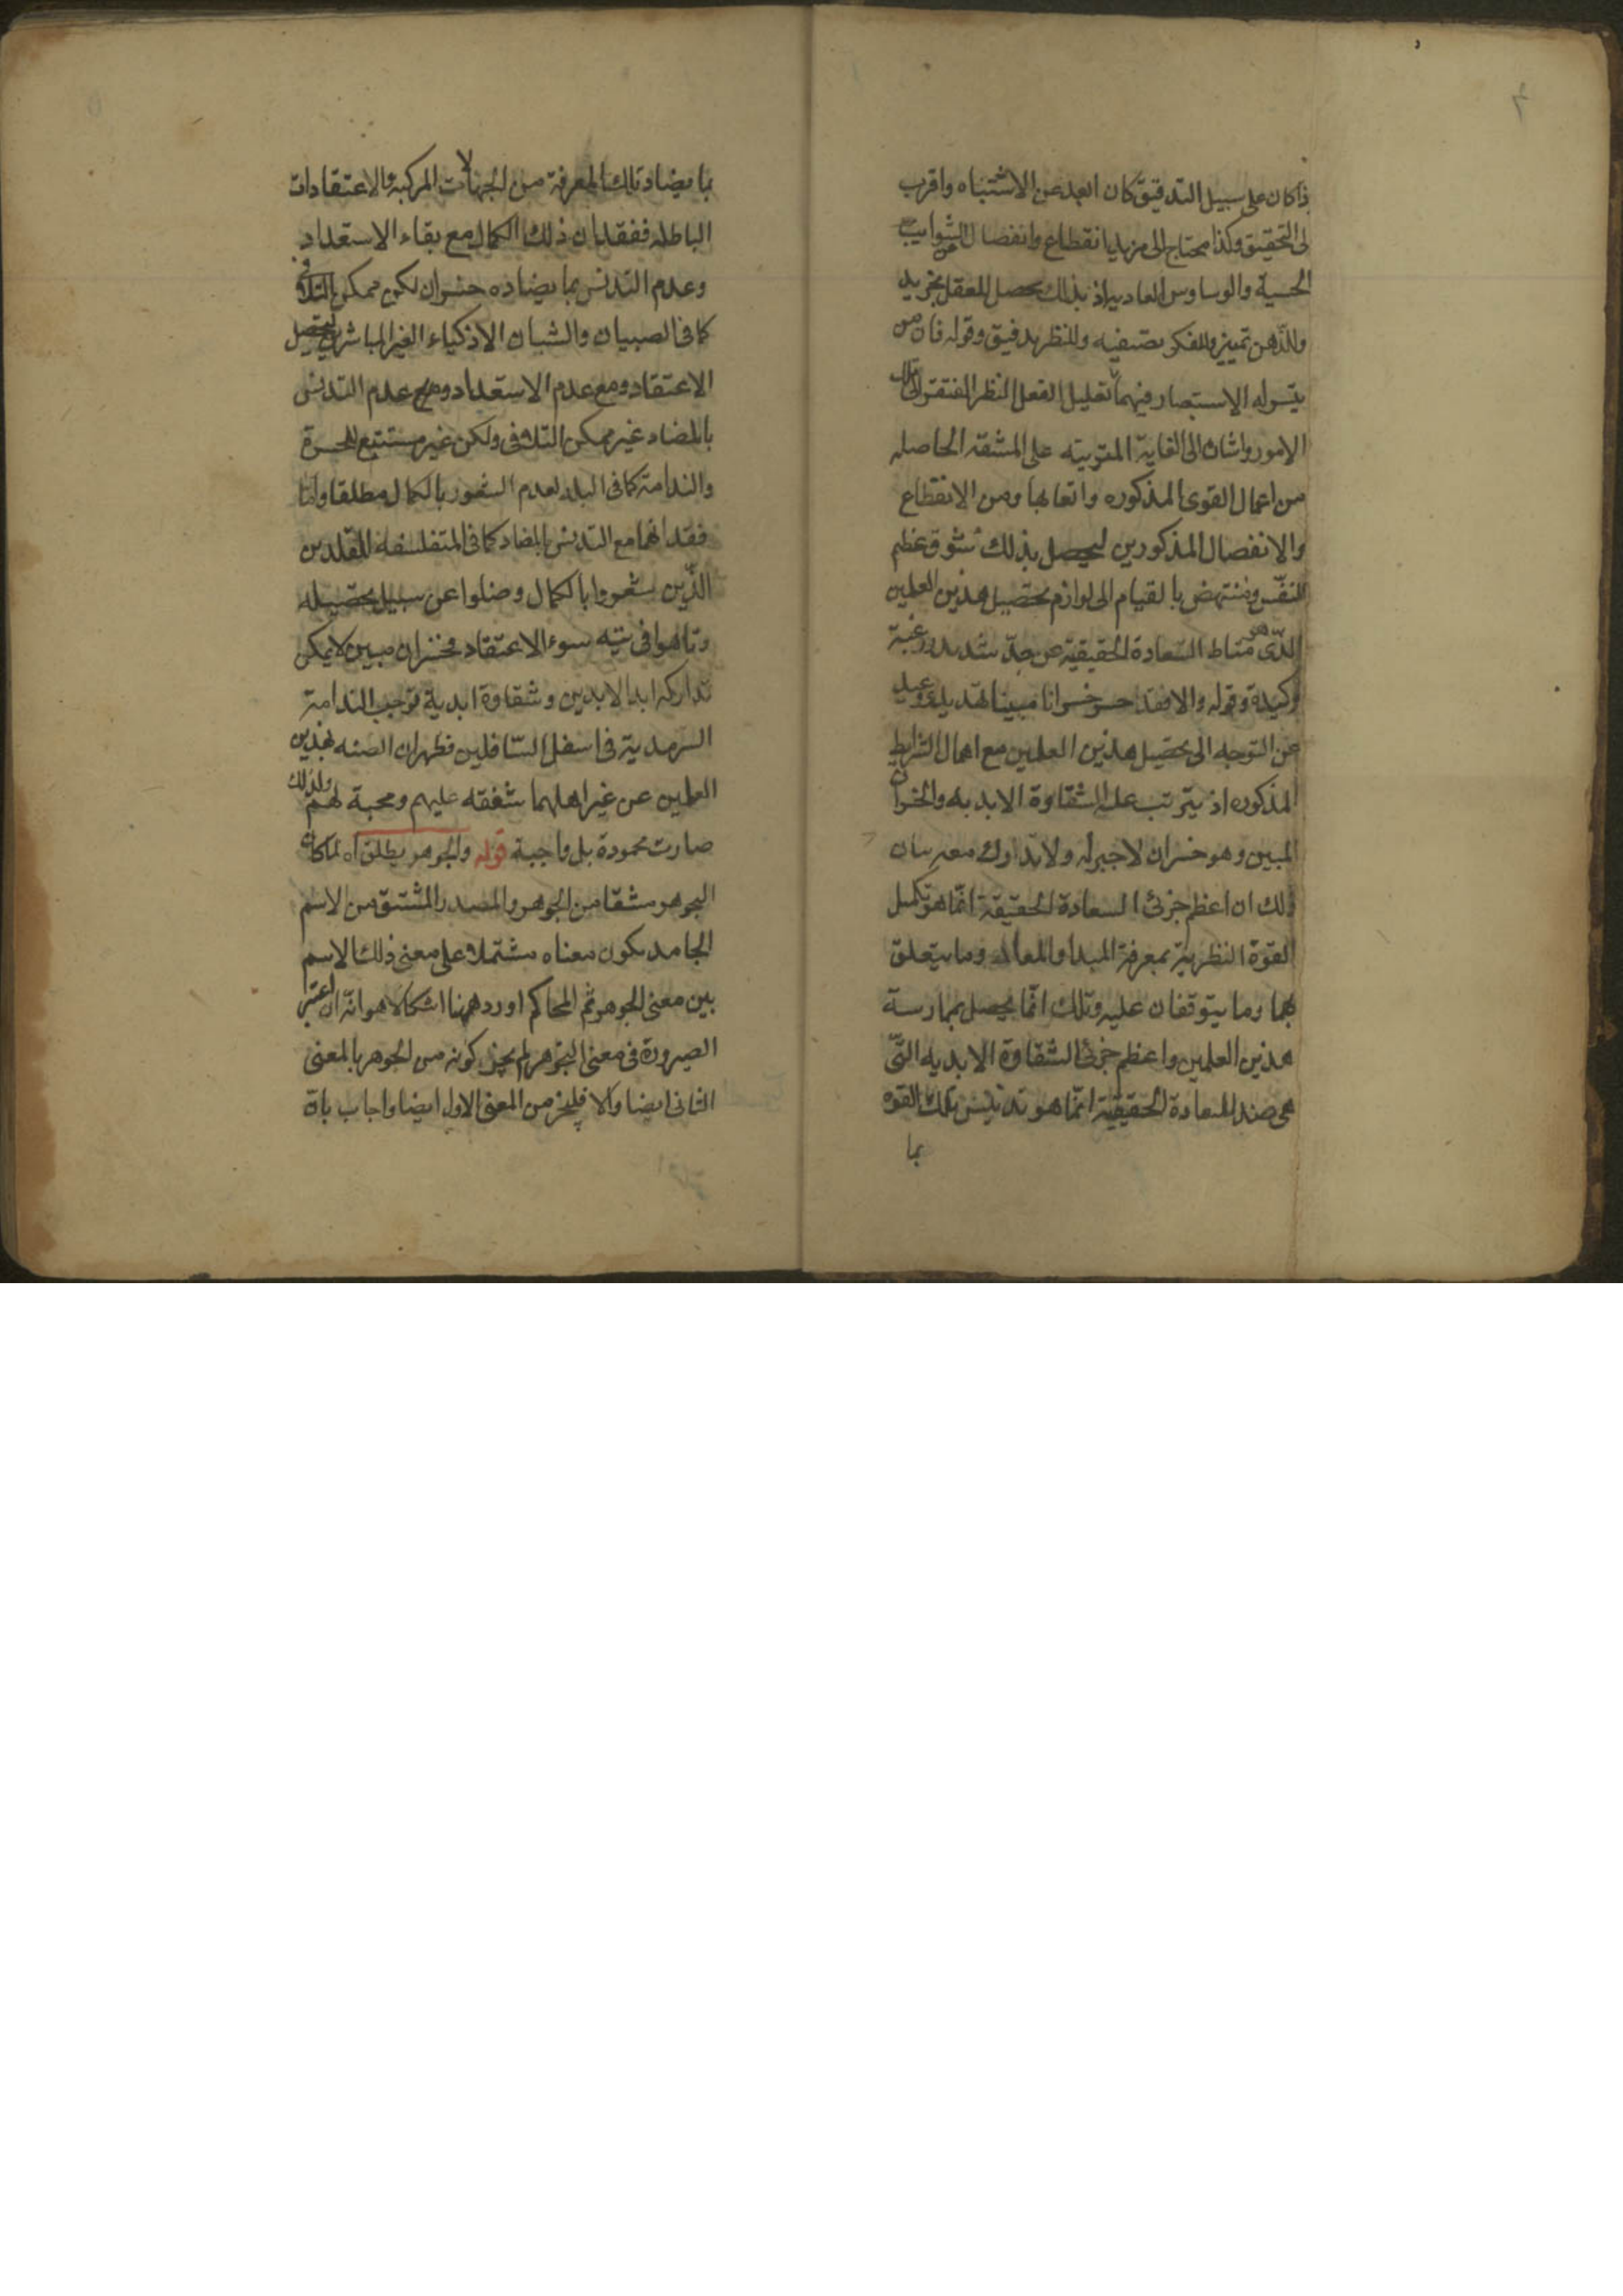 ذا كان على سبيل التدقيق كان ابعد عن الاشتباه واقرب
لى التحقيق وكذا محتاج الى مزيد انقطاع وانفصال عن الشوايب
الحسية والوساوس العادية اذ بذلك يحصل للعقل تجريد
وللذهن تمييز وللفكر تصفيه وللنظر تدقيق وقوله فان من
تيسر له الاستبصار فيهما تعليل لفعل النظر المفتقر الى تلك
الامور واشارة الى الغاية المترتبة على المشقة الحاصله
من اعمال القوى المذكوره واتعابها ومن الانقطاع
والانفصال المذكورين ليحصل بذلك شوق عظيم
للنفس ومنتهض بالقيام الى لوازم تحصيل هذين العلمين
الذى هو مناط السعادة الحقيقية عن جد شديد ورغبة
وكيدة وقوله والا فقد خسر خسرانا مبينا تهديد ووعيد
عن التوجه الى تحصيل هذين العلمين مع اهمال الشرايط
المذكوره اذ يترتب عليه الشقاوة الابديه والخسران
المبين وهو خسران لا جبر له ولا تدارك معه بيان
ذلك ان اعظم جزئى السعادة الحقيقة انما هو تكميل
القوة النظرية بمعرفة المبدا والمعاد وما يتعلق
بهما وما يتوقفان عليه وتلك انما يحصل بممارسة
هذين العلمين واعظم جزئى الشقاوة الابديه التى
هى ضد للسعادة الحقيقية انما هو تدنيس تلك القوه
بما
بما يضاد تلك المعرفة من الجهالات المركبة والاعتقادات
الباطله ففقدان ذلك الكمال مع بقاء الاستعداد
وعدم التدنس بما يضاده خسران لكن ممكن التلافى
كما فى الصبيان والشبان الاذكياء الغير المباشرين لتحصيل
الاعتقاد ومع عدم الاستعداد ومع عدم التدنس
بالمضاد غير ممكن التلافى ولكن غير مستتبع للحسرة
والندامة كما فى البله لعدم الشعور بالكمال مطلقا واما
فقدانهما مع التدنس بالمضاد كما فى المتفلسفه المقلدين
الذين شعروا بالكمال وضلوا عن سبيل تحصيله
وتاهوا فى تيه سوء الاعتقاد فخسران مبين لا يمكن
تداركه ابد الابدين وشقاوة ابدية توجب الندامة
السرمدية فى اسفل السافلين فظهر ان الضنه بهذين
العلمين عن غير اهلهما شفقه عليهم ومحبة لهم ولذلك
صارت محمودة بل واجبة قوله والجوهر يطلق اه لما كان
التجوهر مشتقا من الجوهر والمصدر المشتق من الاسم
الجامد يكون معناه مشتملا على معنى ذلك الاسم
بين معنى الجوهر ثم المحاكم اورد ههنا اشكالا هو انه ان اعتبر
الصيرورة فى معنى التجوهر لم يجز كونه من الجوهر بالمعنى
الثانى ايضا والا فليجز من المعنى الاول ايضا واجاب بان